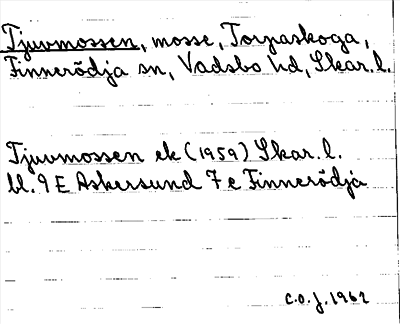 Tjuvmossen, mosse, Torpaskoga,
Finnerödja sn, Vadsbo hd, Skar. l.
Tjuvmossen ek (1959) Skar. l.
bl. 9 E Askersund 7 e Finnerödja
C.O.J. 1962